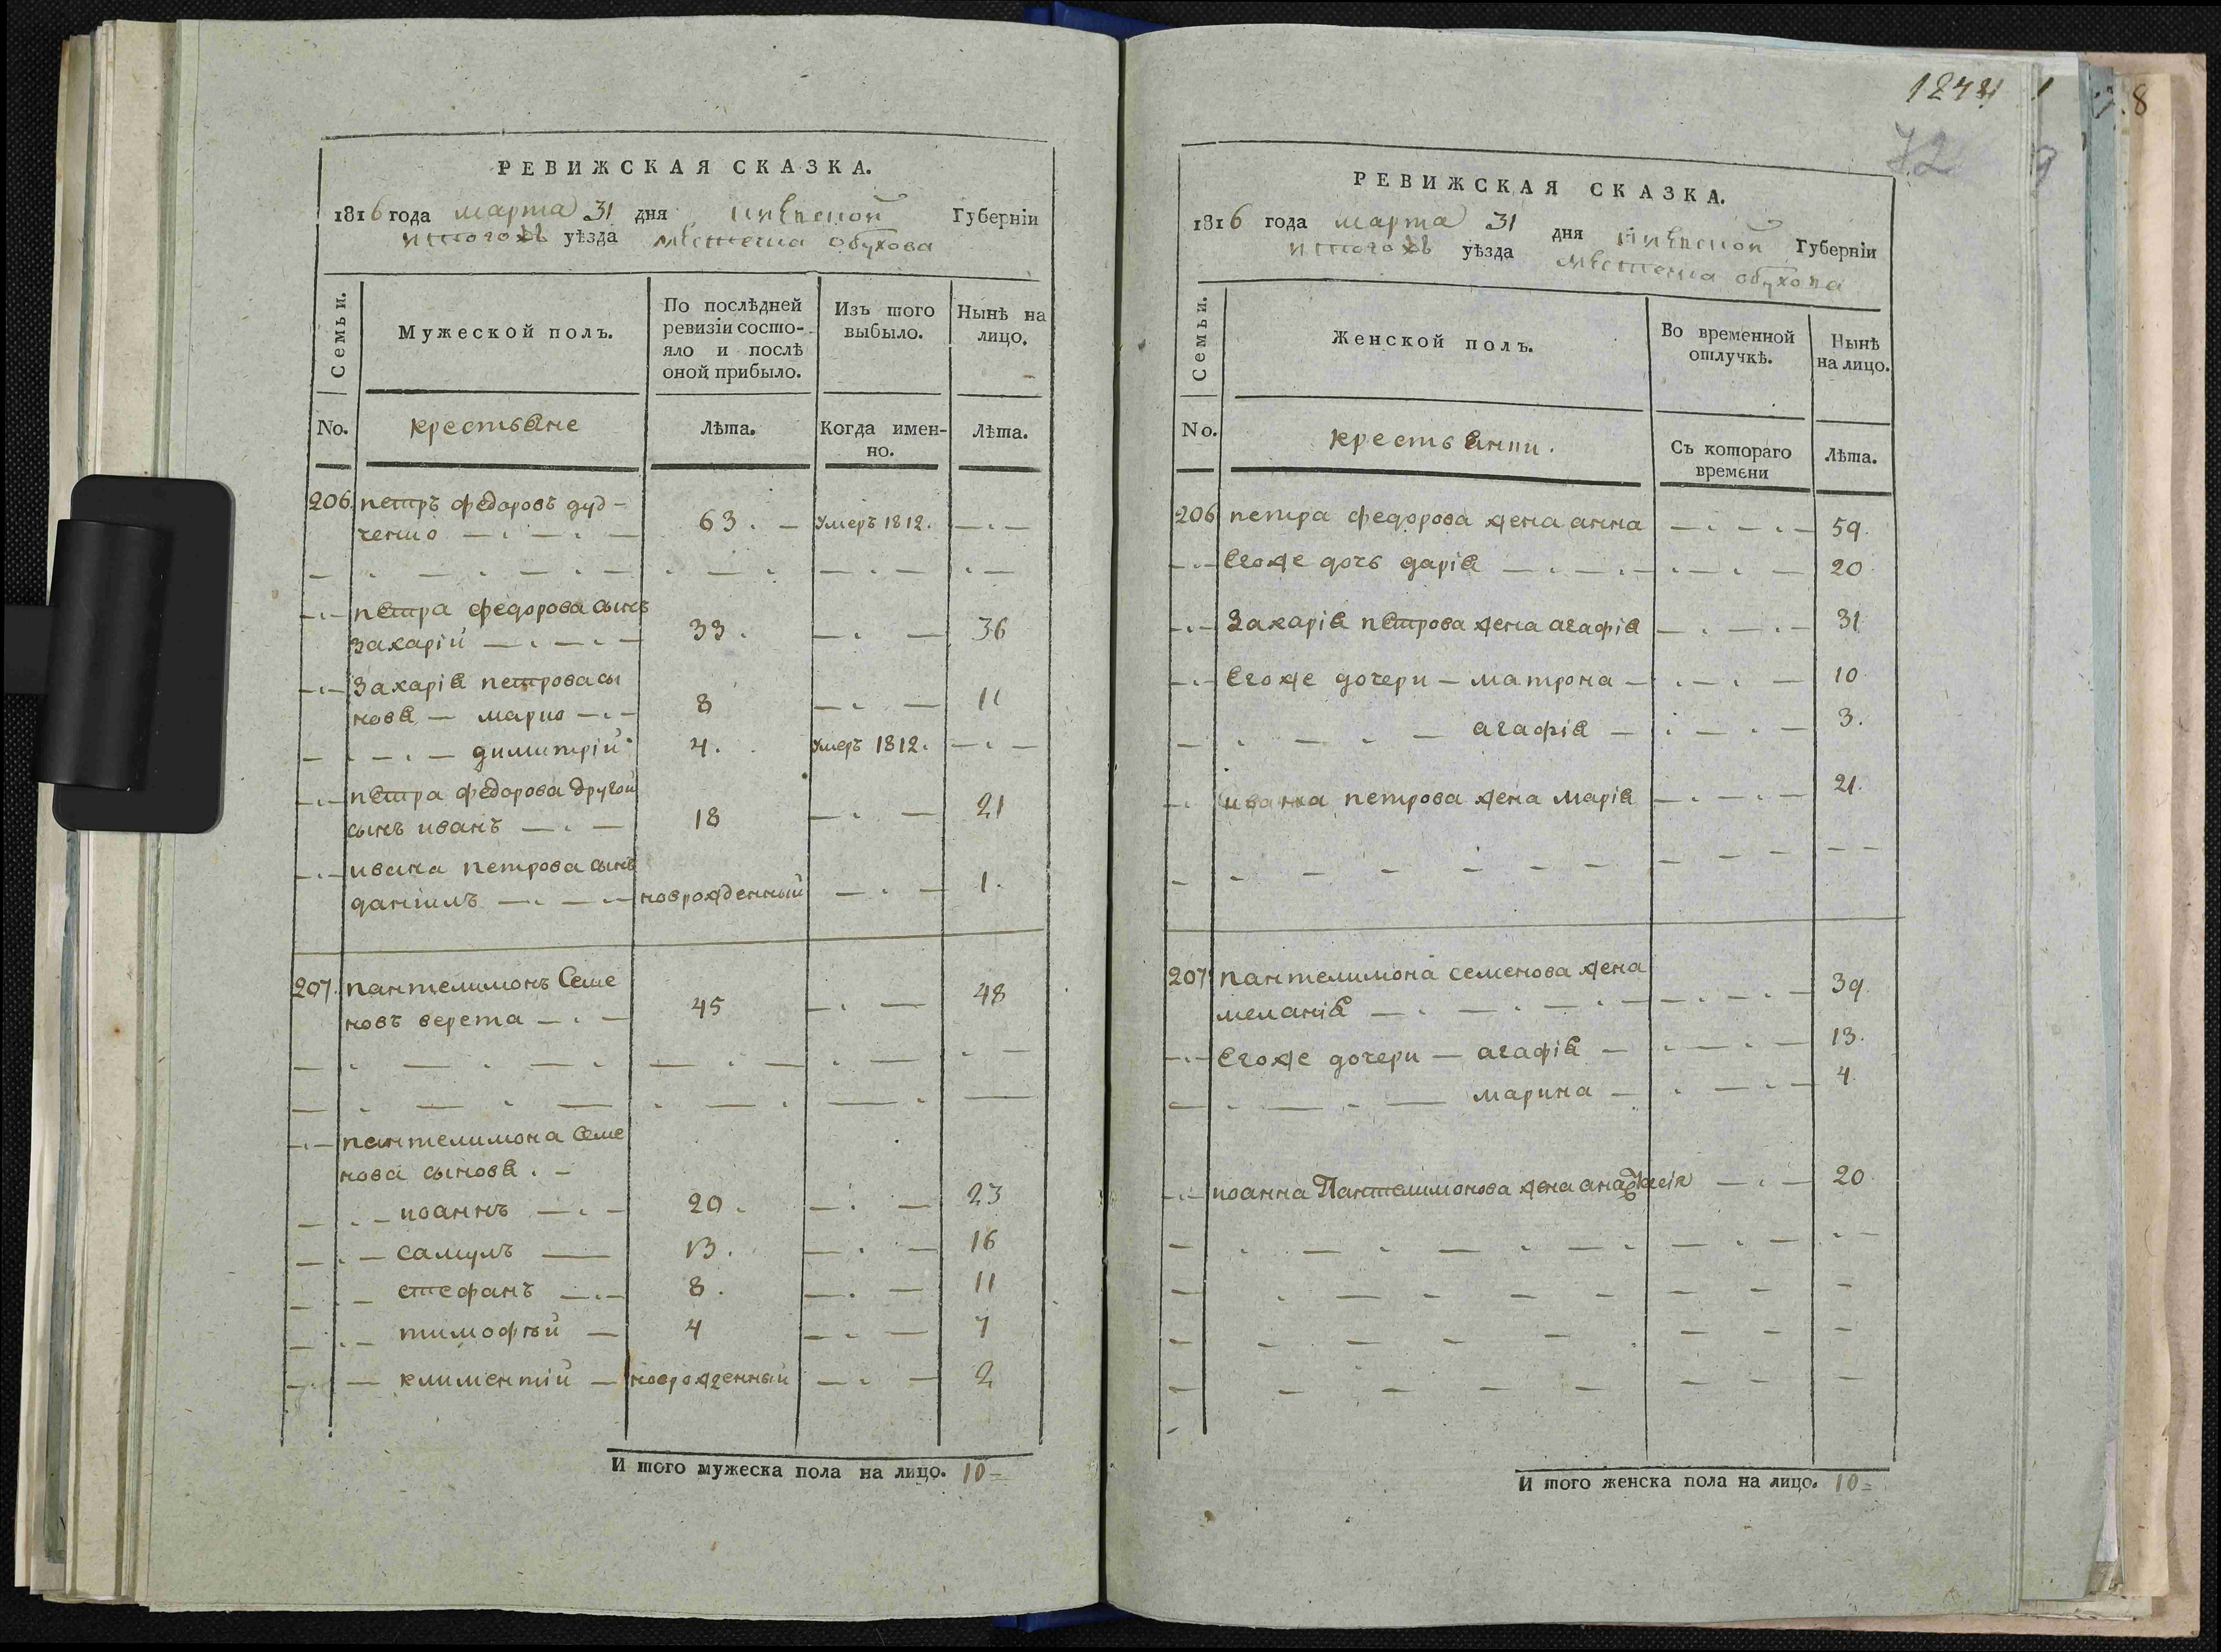 РЕВИЖСКАЯ СКАЗКА.
1816 года марта 31 дня Киевской Губерніи
уѣзда местечка обухова
Семьи.
Мужеской полъ.
По послѣдней ревизіи состо-
яло и послѣ оной прибыло.
Изъ того выбыло.
Нынѣ на лицо.
No.
крестьяне
Лѣта.
Когда имен-
но.
Лѣта.
206 петръ федоровъ дуд-
ченко 63. умеръ 1812.
петра федорова сынъ
захарій 33. 36
Захарія петрова сы
новя марко 8 11
димитрій 4. умеръ 1812.
петра федорова другой
сынъ иванъ 18 21
ивана петрова сынъ
даніилъ новрожденный 1.
207. пантелимонъ Семе
новъ верета 45 48
пантелимона Семе
нова сыновя.
иоаннъ 20. 23
самуилъ 13. 16
стефанъ 8. 11
тимофѣй 4 7
климентій новрожденный 2
И того мужеска пола на лицо. 10=
72
РЕВИЖСКАЯ СКАЗКА.
1816 года марта 31 дня Киевской Губерніи
уѣзда местечка обухова
Семьи.
Женской полъ.
Во временной отлучкѣ.
Нынѣ на лицо.
No.
крестьянки.
Съ котораго времени
Лѣта.
206 петра федорова жена анна 59.
Егоже дочь дарія 20
Захарія петрова жена агафія 31
Егоже дочери матрона 10
агафія 3.
ивана петрова жена марія 21.
207 пантелимона семенова жена
меланія 39.
Егоже дочери агафія 13.
марина 4.
иоанна Пантелимонова жена 20.
И того женска пола на лицо. 10=